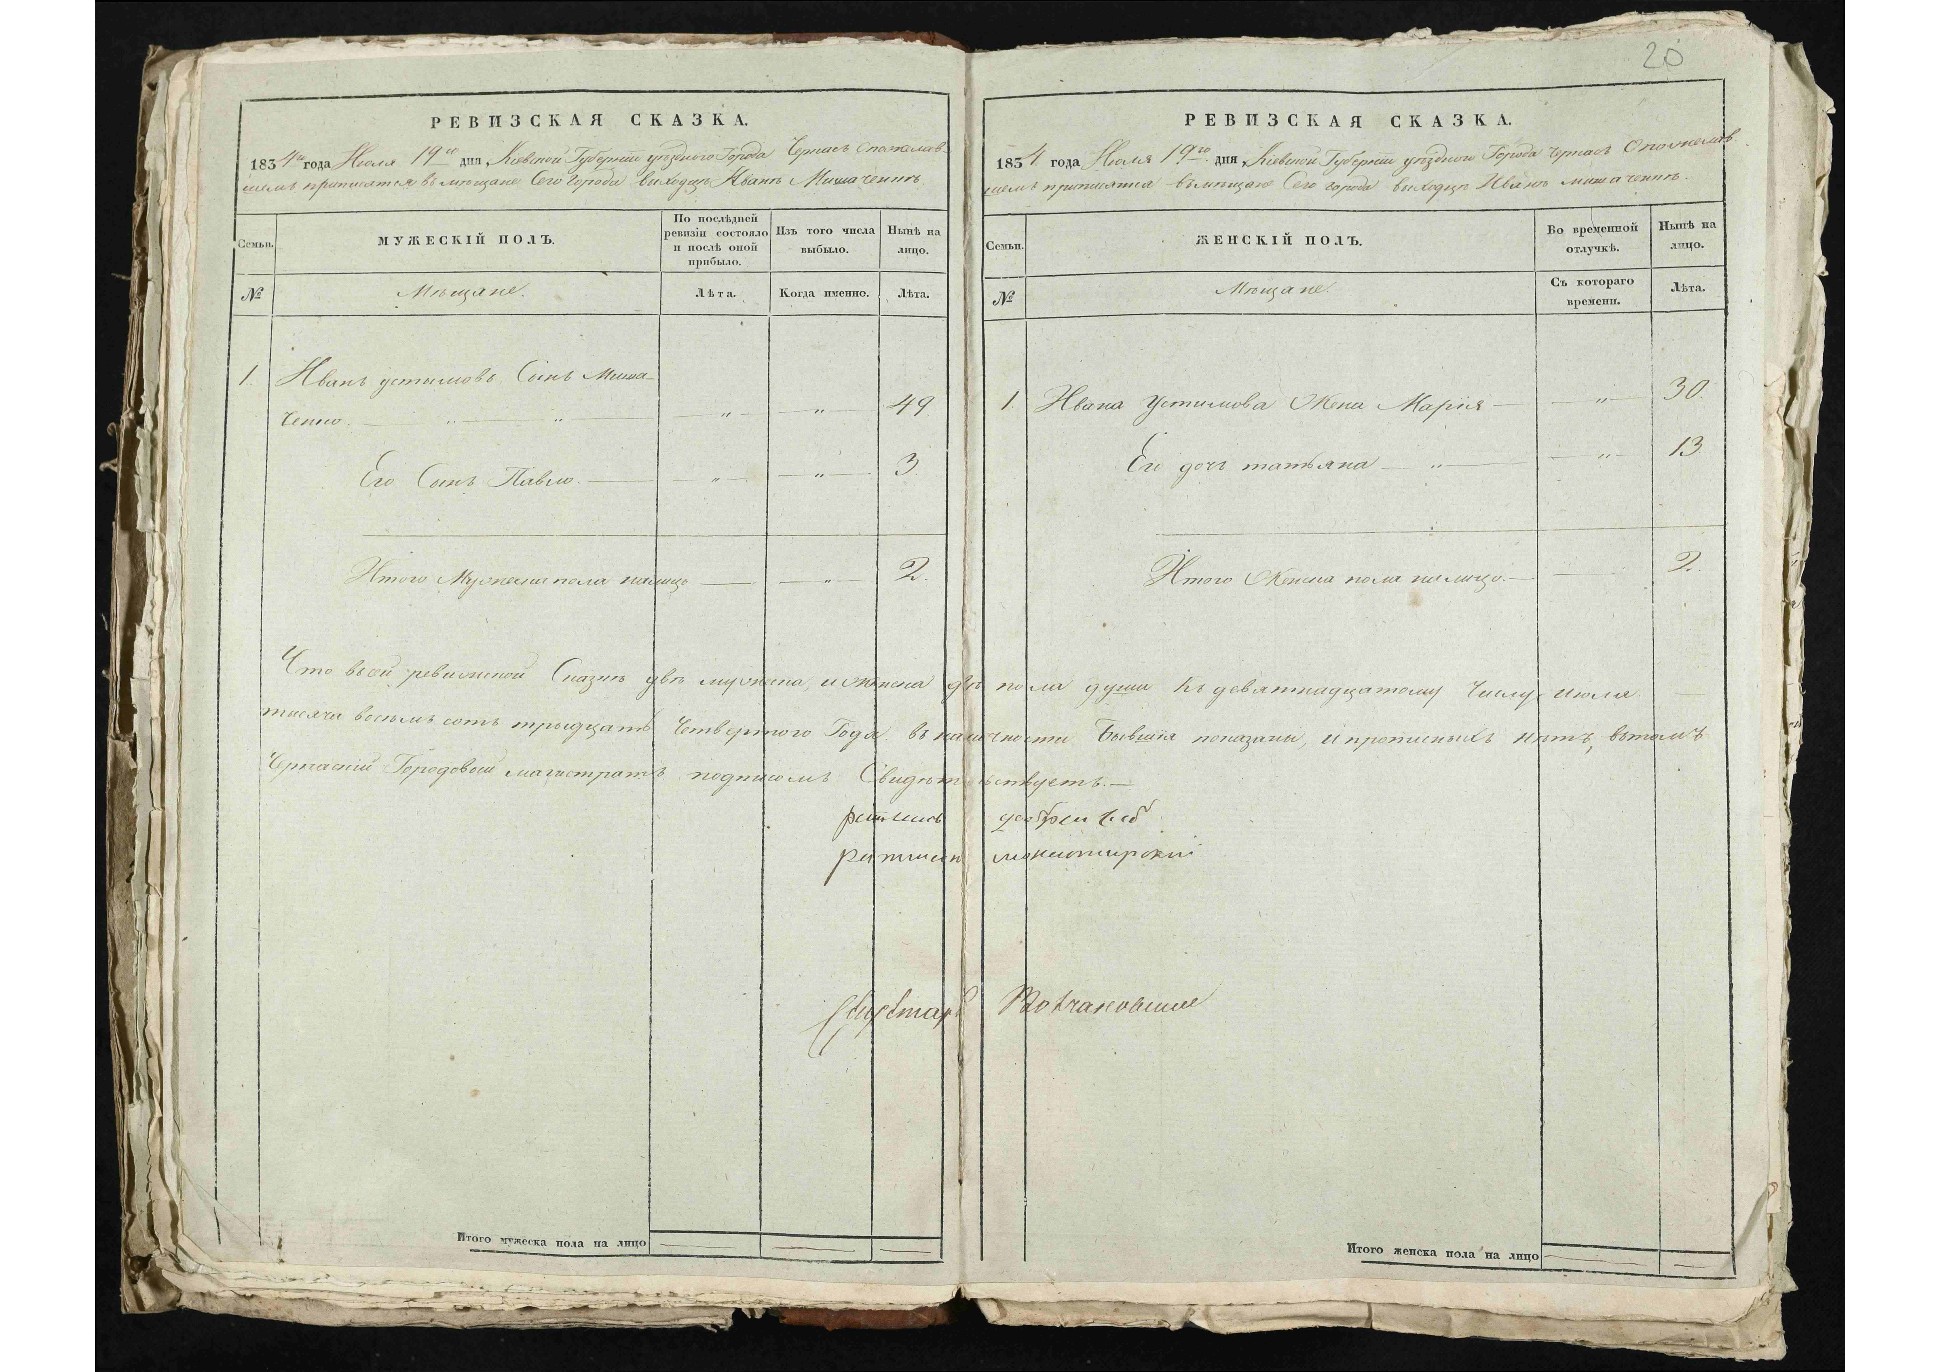 20
РЕВИЗСКАЯ СКАЗКА.
1834го года Июля 19го дня, Киевской Губернiи уезднаго Города Черкасъ О пожелав-
шемъ приписатся въ мещане Сего Города виходцу Иванъ Мишаченкъ
Семьи.
МУЖЕСКIЙ ПОЛЪ.
По послѣдней ревизiи состояло и послѣ оной прибыло.
Изъ того числа выбыло.
Нынѣ на лицо.
№
Мещане.
Лѣта.
Когда именно.
Лѣта.
1. Иванъ Устимовъ Сынъ Миша-
ченко. — " — " — — " — — " — 49
Его Сынъ Павло. — — " — — " — 3.
Итого Мужеска пола налицо — — " — 2.
РЕВИЗСКАЯ СКАЗКА.
1834 года Июля 19го дня, Киевской Губернiи уездного Города Черкасъ О пожелав
шемъ приписатся въ мещане Сего города виходцу Иванъ Мишаченкъ.
Семьи.
ЖЕНСКIЙ ПОЛЪ.
Во временной отлучкѣ.
Нынѣ на лицо.
№
Мещане.
Съ котораго времени.
Лѣта.
1. Ивана Устимова Жена Марiя — — " — 30.
Его дочь татьяна — " — — " — 13.
Итого Женска пола налицо. — — 2.
Что въ сей ревизской Сказке две мужеска, и женска две пола души къ девятнадцатому Числу Июля —
тисяча восемъ сотъ тридцать Четвертого Года въ наличности Бывшiя показаны, и прописныхъ нетъ, вътомъ
Черкаскiй Городовой магистратъ подписомъ Свидетельствуетъ. —
ратманъ
ратманъ
Секретарь
Итого мужеска пола на лицо — — —
Итого женска пола на лицо — —